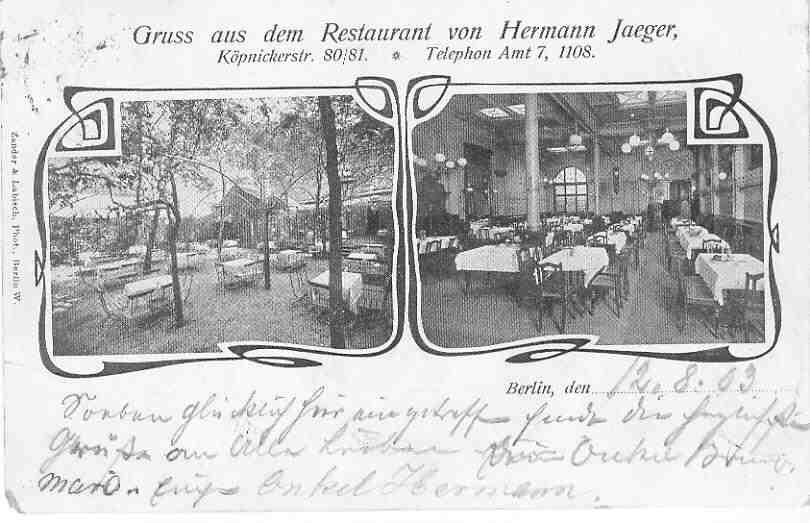 Gruss aus dem Restaurant von Hermann Jaeger,
Köpnickerstr. 80/81. * Telephon Amt 7, 1108.
Zander & Labisch, Phot., Berlin W.
Berlin, den 12. 8. 03
Soeben glücklich hier eingetroffen sende die herzlichsten
Grüße an Alle Lieben Onkel
Onkel Hermann.